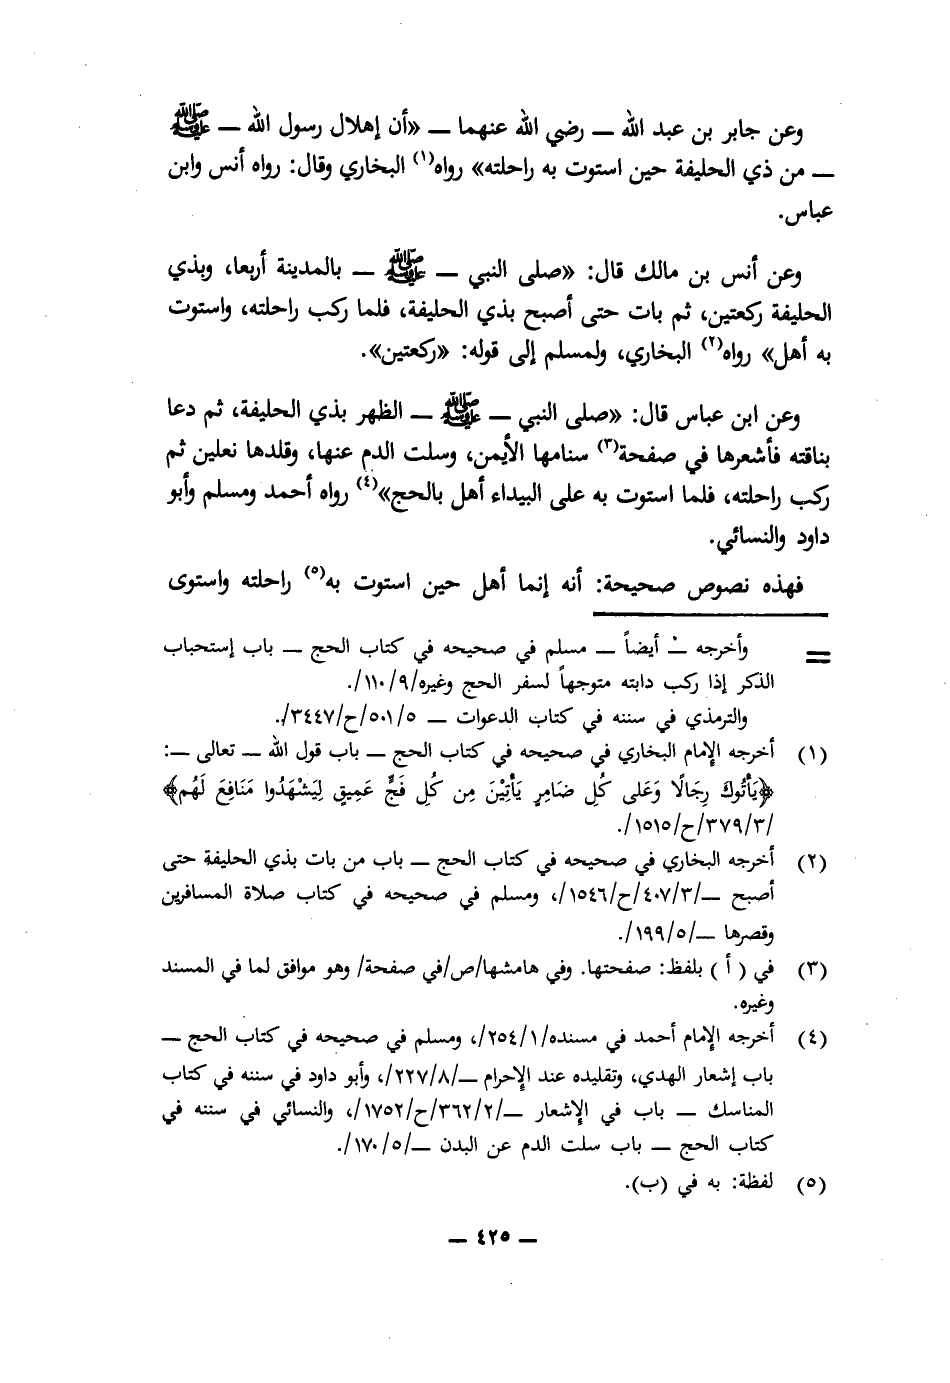 وعن جابر بن عبد الله — رضي الله عنهما — «أن إهلال رسول الله — ﷺ
— من ذي الحليفة حين استوت به راحلته» رواه(١) البخاري وقال: رواه أنس وابن
عباس.
وعن أنس بن مالك قال: «صلى النبي — ﷺ — بالمدينة أربعا، وبذي
الحليفة ركعتين، ثم بات حتى أصبح بذي الحليفة، فلما ركب راحلته، واستوت
به أهل» رواه(٢) البخاري، ولمسلم إلى قوله: «ركعتين».
وعن ابن عباس قال: «صلى النبي — ﷺ — الظهر بذي الحليفة، ثم دعا
بناقته فأشعرها في صفحة(٣) سنامها الأيمن، وسلت الدم عنها، وقلدها نعلين ثم
ركب راحلته، فلما استوت به على البيداء أهل بالحج»(٤) رواه أحمد ومسلم وأبو
داود والنسائي.
فهذه نصوص صحيحة: أنه إنما أهل حين استوت به(٥) راحلته واستوى
= وأخرجه — أيضاً — مسلم في صحيحه في كتاب الحج — باب إستحباب
الذكر إذا ركب دابته متوجهاً لسفر الحج وغيره/٩/١١٠/.
والترمذي في سننه في كتاب الدعوات — ٥/٥٠١/ح/٣٤٤٧/.
(١) أخرجه الإمام البخاري في صحيحه في كتاب الحج — باب قول الله — تعالى —:
﴿يَأْتُوكَ رِجَالًا وَعَلى كُلِ ضَامِرٍ يَأْتِيْنَ مِن كُلِ فَجٍّ عَمِيقٍ لِيَشْهَدُوا مَنَافِعَ لَهُم﴾
/٣/٣٧٩/ح/١٥١٥/.
(٢) أخرجه البخاري في صحيحه في كتاب الحج — باب من بات بذي الحليفة حتى
أصبح —/٣/٤٠٧/ح/١٥٤٦/، ومسلم في صحيحه في كتاب صلاة المسافرين
وقصرها —/٥/١٩٩/.
(٣) في ( أ ) بلفظ: صفحتها. وفي هامشها/ص/في صفحة/ وهو موافق لما في المسند
وغيره.
(٤) أخرجه الإمام أحمد في مسنده/١/٢٥٤/، ومسلم في صحيحه في كتاب الحج —
باب إشعار الهدي، وتقليده عند الإحرام —/٨/٢٢٧/، وأبو داود في سننه في كتاب
المناسك — باب في الإشعار —/٢/٣٦٢/ح/١٧٥٢/، والنسائي في سننه في
كتاب الحج — باب سلت الدم عن البدن —/٥/١٧٠/.
(٥) لفظة: به في (ب).
— ٤٢٥ —